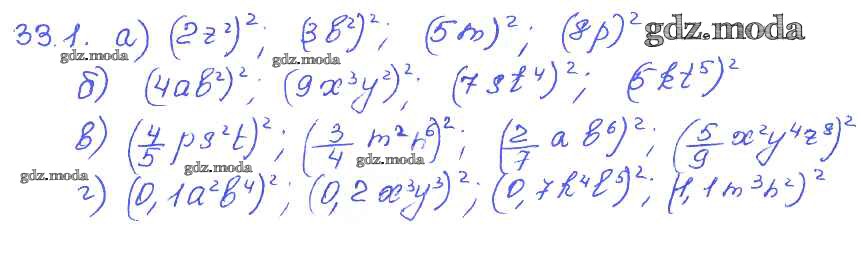 33.1. а) (2z²)²; (3b²)²; (5m)²; (8p)² gdz.moda
gdz.moda gdz.moda
б) (4ab²)²; (9x³y²)²; (7st⁴)²; (5kt⁵)²
в) (4/5 ps²t)²; (3/4 m²n⁶)²; (2/7 a b⁶)²; (5/9 x²y⁴z⁸)²
gdz.moda gdz.moda
г) (0,1a²b⁴)²; (0,2x³y³)²; (0,7k⁴l⁵)²; (1,1m³n²)²